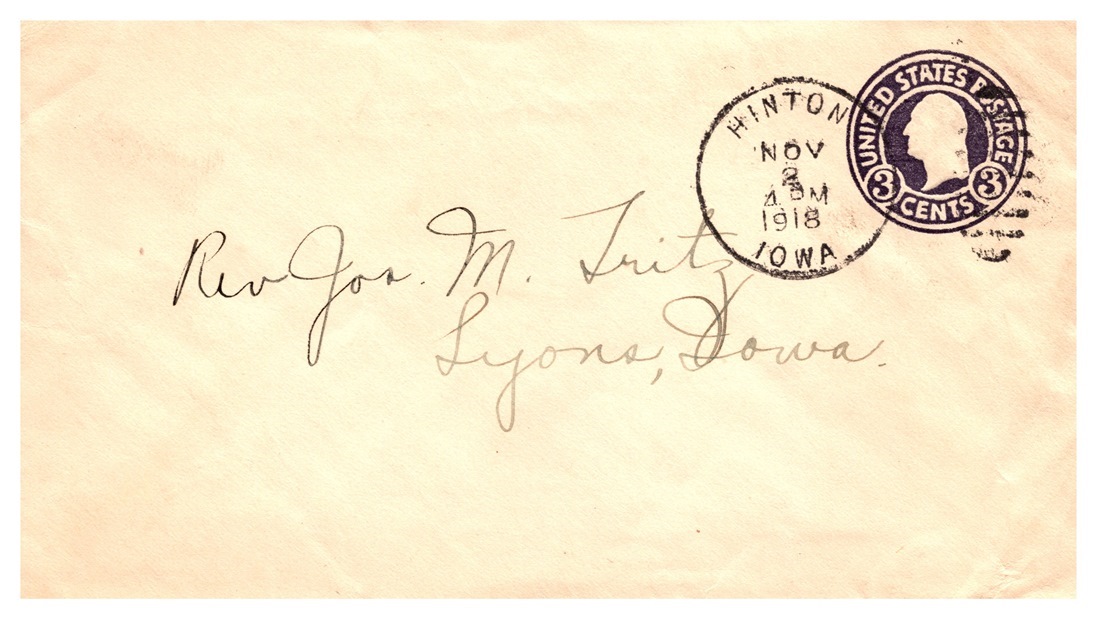 HINTON
NOV
2
4 PM
1918
IOWA
UNITED STATES POSTAGE
3 CENTS 3
Rev Jos. M. Fritz
Lyons, Iowa.